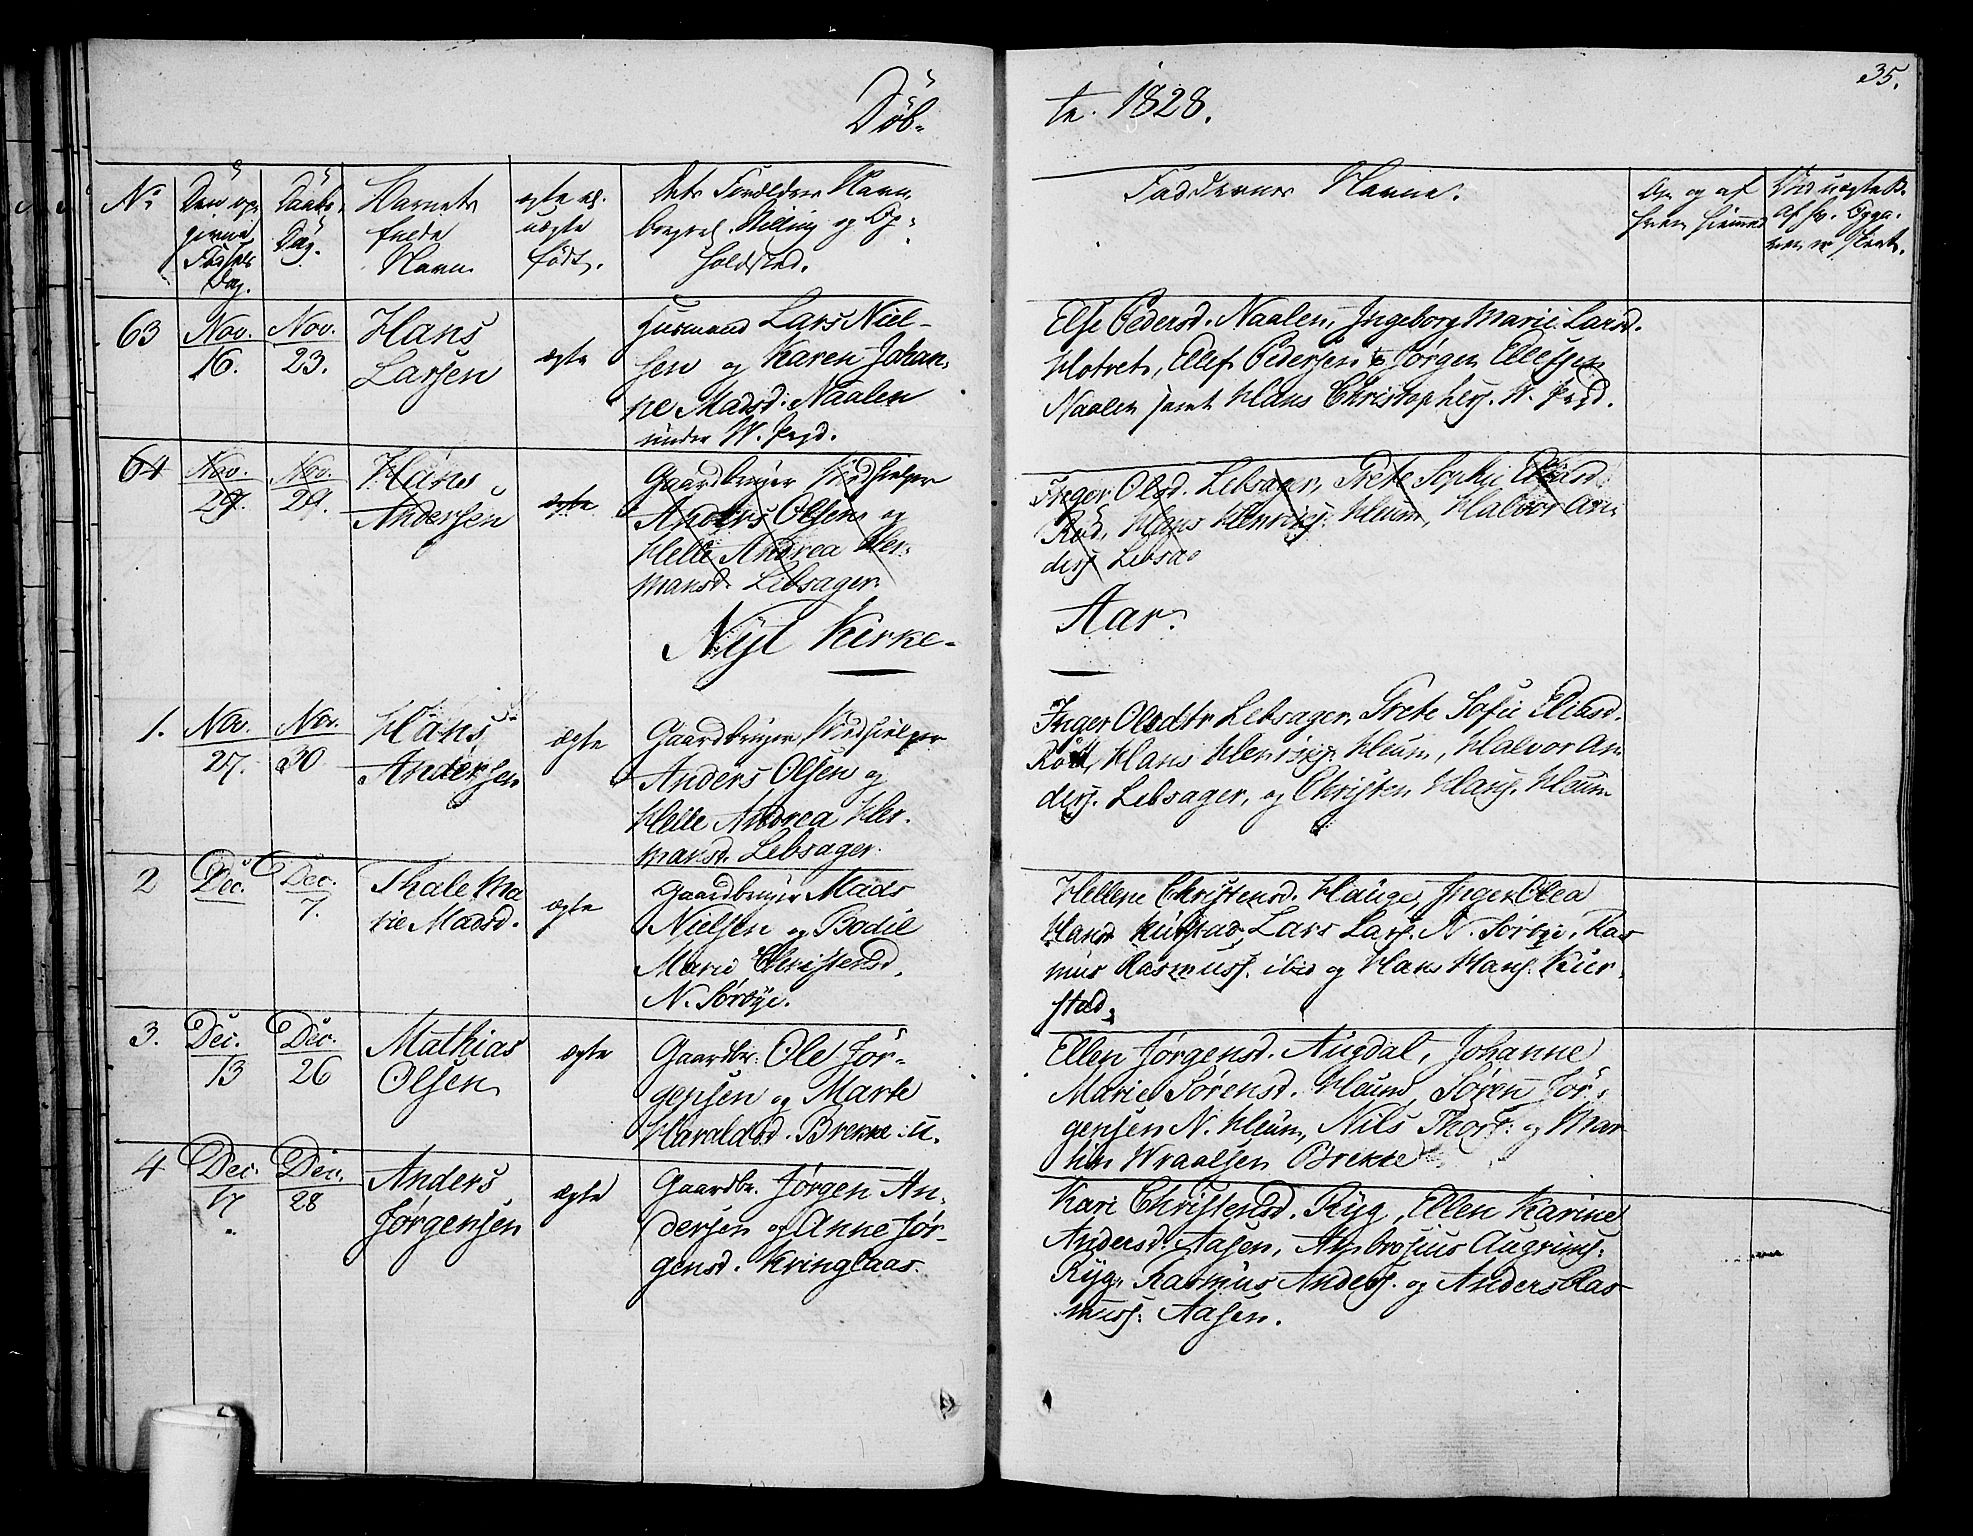 Döb-
te. 1828.
35.
No
Den op-
givne
Fødsels
Dag.
Daabs
Dag.
Barnets
fulde
Navn
ægte el.
uægte
født.
Dets Forældres Navn
Stilling og Op-
holdsted.
Faddernes Navne.
63
Nov. 16.
Nov. 23.
Hans
Larsen
ægte
Huusmand Lars Niel-
sen og Karen Johan-
ne Madsd. Naalen
under W.
Else Pedersd. Naalen, Ingeborg Marie Larsd.
Ellef Pedersen & Jørgen Ellefsen
Naalen samt Hans Christophers. W.
64
Nov. 29.
Nov. 29.
Hans
Andersen
ægte
Gaardbruger
Anders Olsen og
Helle Andrea Her-
mansd. Lebsager
Inger Olsd. Lebsager, Grete Sophie Eliasd.
Rød, Hans Henrics. Heum, Halvor An-
ders. Lebsa
Nyt Kirke-
Aar.
1.
Nov. 27.
Nov. 30
Hans
Andersen
ægte
Gaardbruger
Anders Olsen og
Helle Andrea Her-
mansd. Lebsager.
Inger Olsdtr Lebsager, Grete Sofie Eliasd.
Rød, Hans Henrics. Heum, Halvor An-
ders. Lebsager, og Christen Hans. Heum
2
Dec.
Dec. 7.
Thale Ma
rie Madsd.
ægte
Gaardbruger Mads
Nielsen og Bodil
Marie Christensd.
N. Sørbye.
Hellene Christensd. Hauge, Inger Olea
Hansd. Lars Lars. N. Sørbye, Ras
mus Rasmuss. ibid og Hans Hans. Kier-
stad.
3.
Dec. 13
Dec. 26
Mathias
Olsen
ægte
Gaardbr. Ole Jør-
gensen og Marte
Haraldsd. Brekke u.
Ellen Jørgensd. Augdal, Johanne
Marie Sørensd. Heum, Søren Jør-
gensen N. Heum, Nils Thors. og Mar
tin Wraalsen Brekke
4
Dec. 17
Dec. 28
Anders
Jørgensen
ægte
Gaardbr. Jørgen An-
dersen og Anne Jør-
gensd. Kringlaas.
Kari Christensd. Ryg, Ellen Karine
Andersd. Aasen, Ambrosius Augrims.
Ryg, Rasmus Anders. og Anders Ras
muss. Aasen.